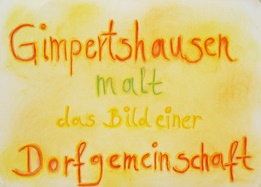 Gimpertshausen
malt
das Bild einer
Dorfgemeinschaft